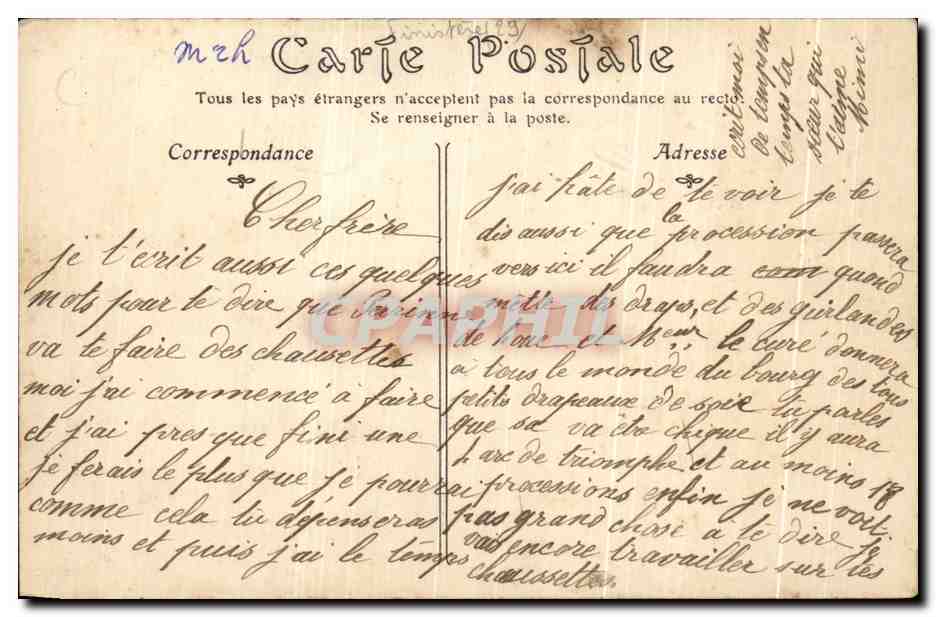 Finistère (29)
mrh
Carte Postale
Tous les pays étrangers n'acceptent pas la correspondance au recto.
Se renseigner à la poste.
Correspondance
Cher frère
je t'écrit aussi ces quelques
mots pour te dire que
va te faire des chausettes
moi j'ai commencé à faire
et j'ai pres que fini une
je ferais le plus que je pourrai
comme cela tu dépenseras
moins et puis j'ai le temps
Adresse
j'ai hâte de te voir je te
dis aussi que la procession passera
vers ici il faudra quand
mettre des draps, et des guirlandes
de houx et Meur le curé donnera
à tous le monde du bourg des tous
petits drapeaux de soie tu parles
que sa va être chique il y aura
4 arc de triomphe et au moins 18
processions enfin je ne voit
pas grand chose à te dire je
vais encore travailler sur tes
chaussettes
ecrit moi
de temps en
temps ta
sœur qui
t'aime
Mimi
CPARHIL